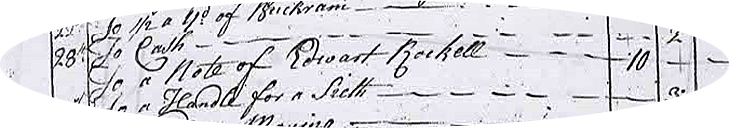 To ½ a Yd of Buckram
28th To Cash
To a Note of Edwart Rockell 10
To a Handle for a Sieth 3